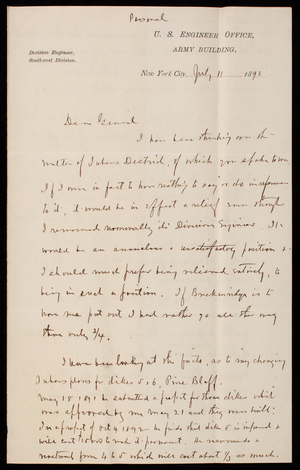 Personal
U. S. Engineer Office,
Army Building,
Division Engineer,
Southwest Division.
New York City, July 11 1893
Dear General
I have been thinking over the
matter of Tabers District, of which you spoke to me
If I were in fact to have nothing to say or do in reference
to it, it would be in effect a relief even though
I remained nominally its Division Engineer. It
would be an anomalous & unsatisfactory position &
I should much prefer being relieved entirely, to
being in such a position. If Breckinridge is to
have me put out I had rather go all the way
than only 3/4.
I have been looking at the facts, as to my changing
Tabers plans for dikes 5 & 6, Pine Bluff.
May 15 1891 he submitted a project for those dikes which
was approved by me May 21 and they were built.
In a project of Oct 4 1892 he finds that dike 5 is injured &
will cost to make it permanent. He recommends a
from 4 to 5 which will cost about 1/3 as much.